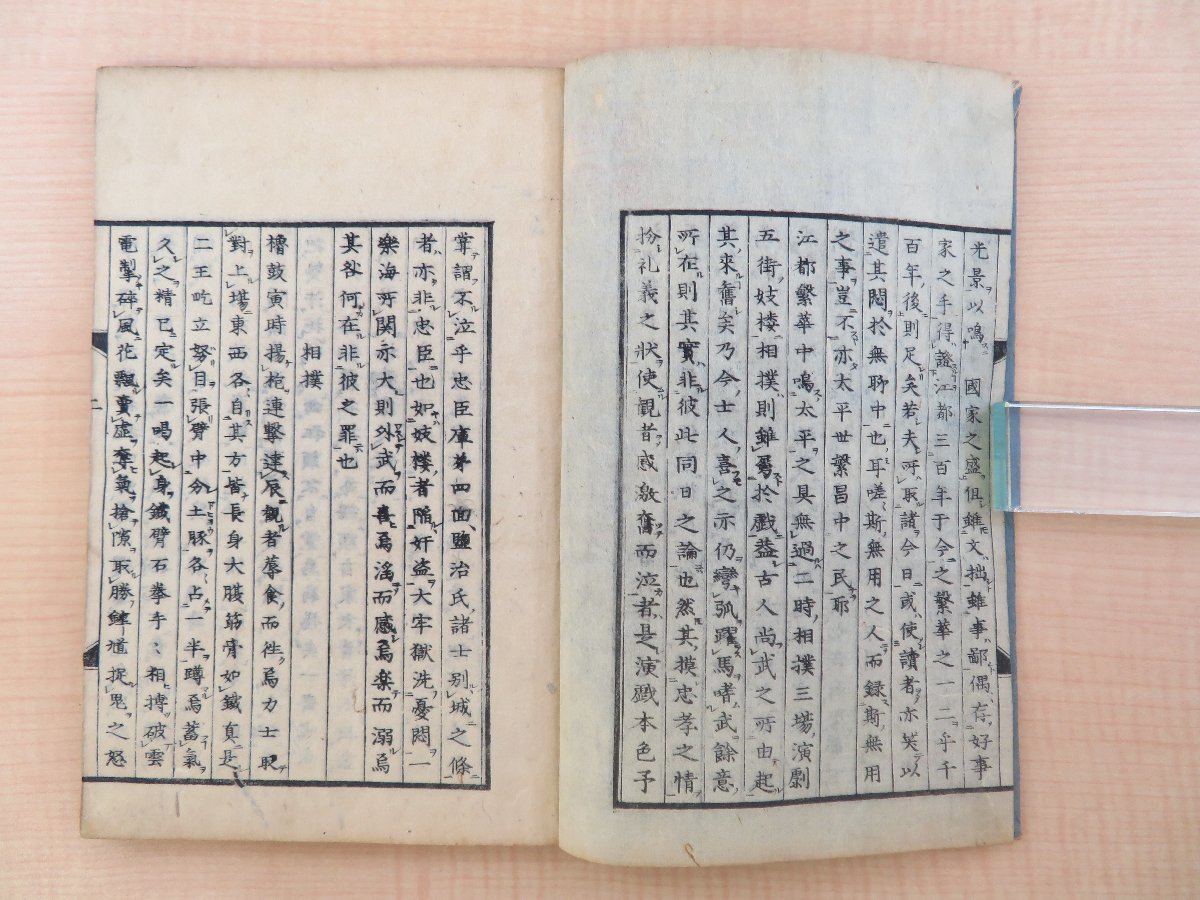 光景以鳴　國家之盛但雖文拙雖事鄙偶存好事
家之手得證江都三百年于今之繁華之一二乎千
百年後則足矣若夫所取諸今日或使讀者亦笑以
遣其悶於無聊中也耳嗟斯無用之人而録斯無用
之事豈不亦太平世繁昌中之民耶
江都繁華中鳴太平之具無過二時相撲三場演劇
五街妓楼相撲則雖屬於戯蓋古人尚武之所由起
其來舊矣乃今士人喜之亦仍彎弧躍馬嗜武餘意
所在則其實非彼此同日之論也然其摸忠孝之情
扮礼義之状使観者感激奮而泣者是演戯本色予
常謂不泣乎忠臣庫第四面鹽治氏諸士別城之條
者亦非忠臣也如妓樓者陷奸盗大牢獄洗憂悶一
樂海所関亦大則外武而喜焉淫而感焉楽而溺焉
其咎何在非彼之罪也
相撲
櫓鼓寅時揚枹連撃達辰観者蓐食而徃焉力士取
對上場東西各自其方皆長身大腹筋骨如鐵真是
二王屹立努目張臂中分土豚各占一半蹲焉蓄氣
久之精已定矣一喝起身鐵臂石拳手々相搏破雲
電掣碎風花飄賣虚奪氣搶隙取勝鍾馗捉鬼之怒
二